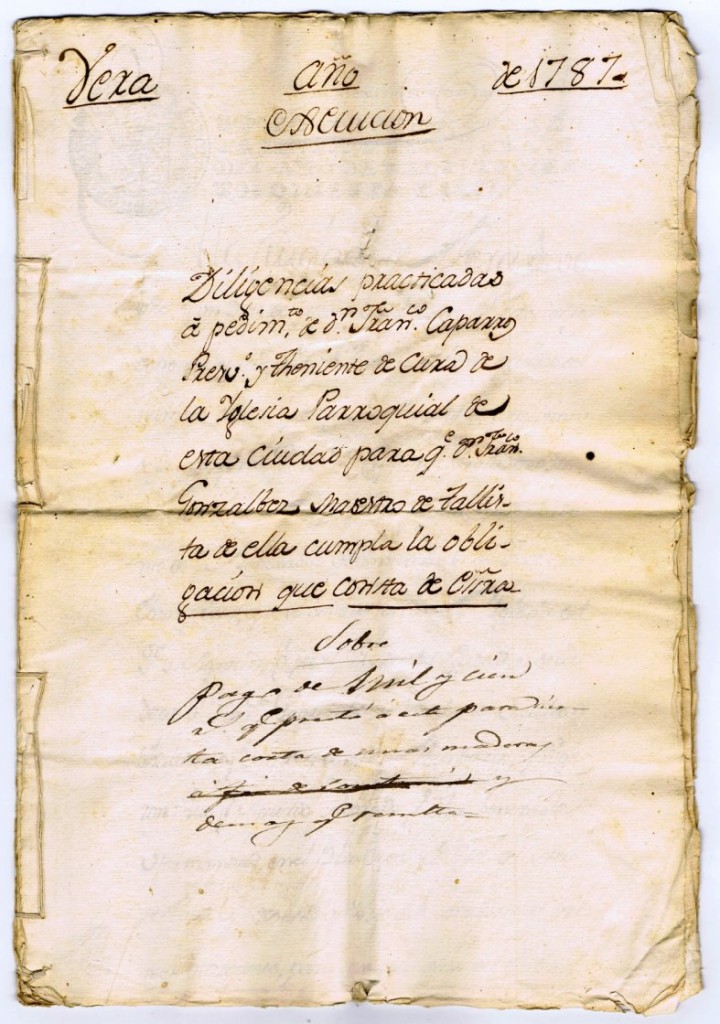 Vera Año de 1787.
Execucion
Diligencias practicadas
á pedim.to de d.n Fran.co Caparros
Presv.o y Theniente de Cura de
la Yglesia Parroquial de
esta Ciudad para q.e d.n Fran.co
Gonzalbez Maestro de Tallis-
ta de ella cumpla la obli-
gacion que consta de Essra
Sobre
pago de 1 mil y cien
r.s q.e prestó á este para
ta corta de unas maderas
á fin de y
demas q.e resulta